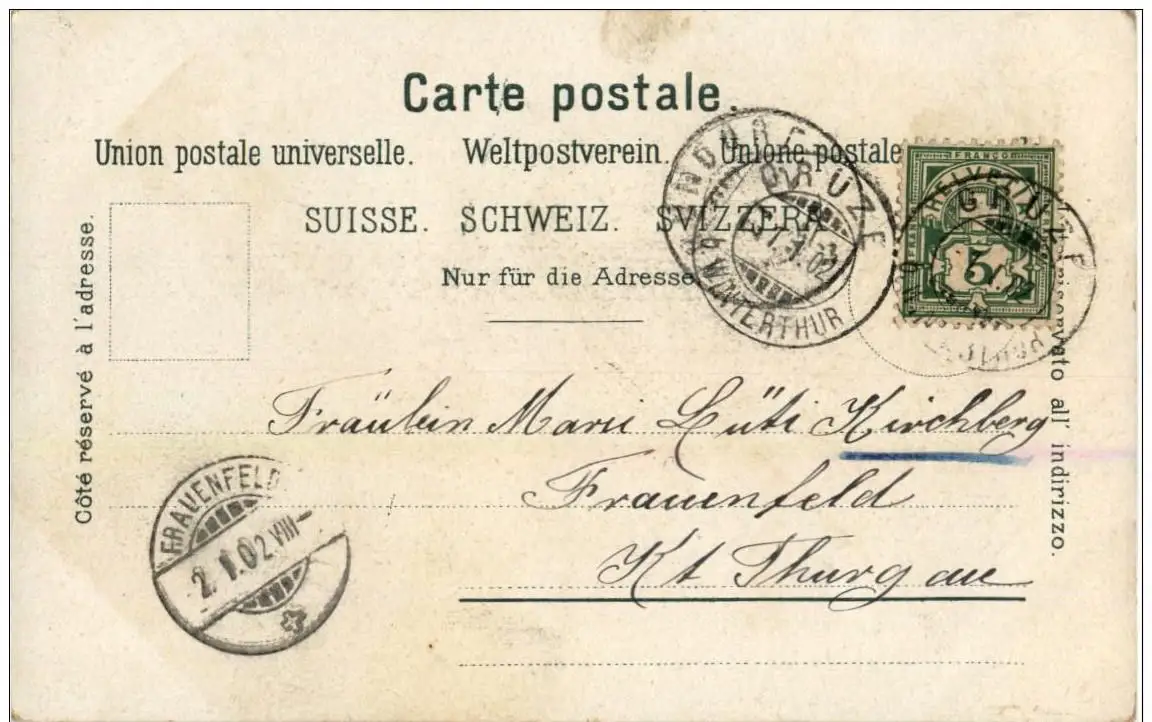 Carte postale.
Union postale universelle. Weltpostverein. Unione postale
SUISSE. SCHWEIZ. SVIZZERA
Nur für die Adresse
Côté réservé à l'adresse.
all' indirizzo.
GRÜZE
WINTERTHUR
FRANCO
HELVETIA
5
GRÜZE
Fräulein Marie Lüti Kirchberg
Frauenfeld
Kt Thurgau
FRAUENFELD
2.1.02.VIII-